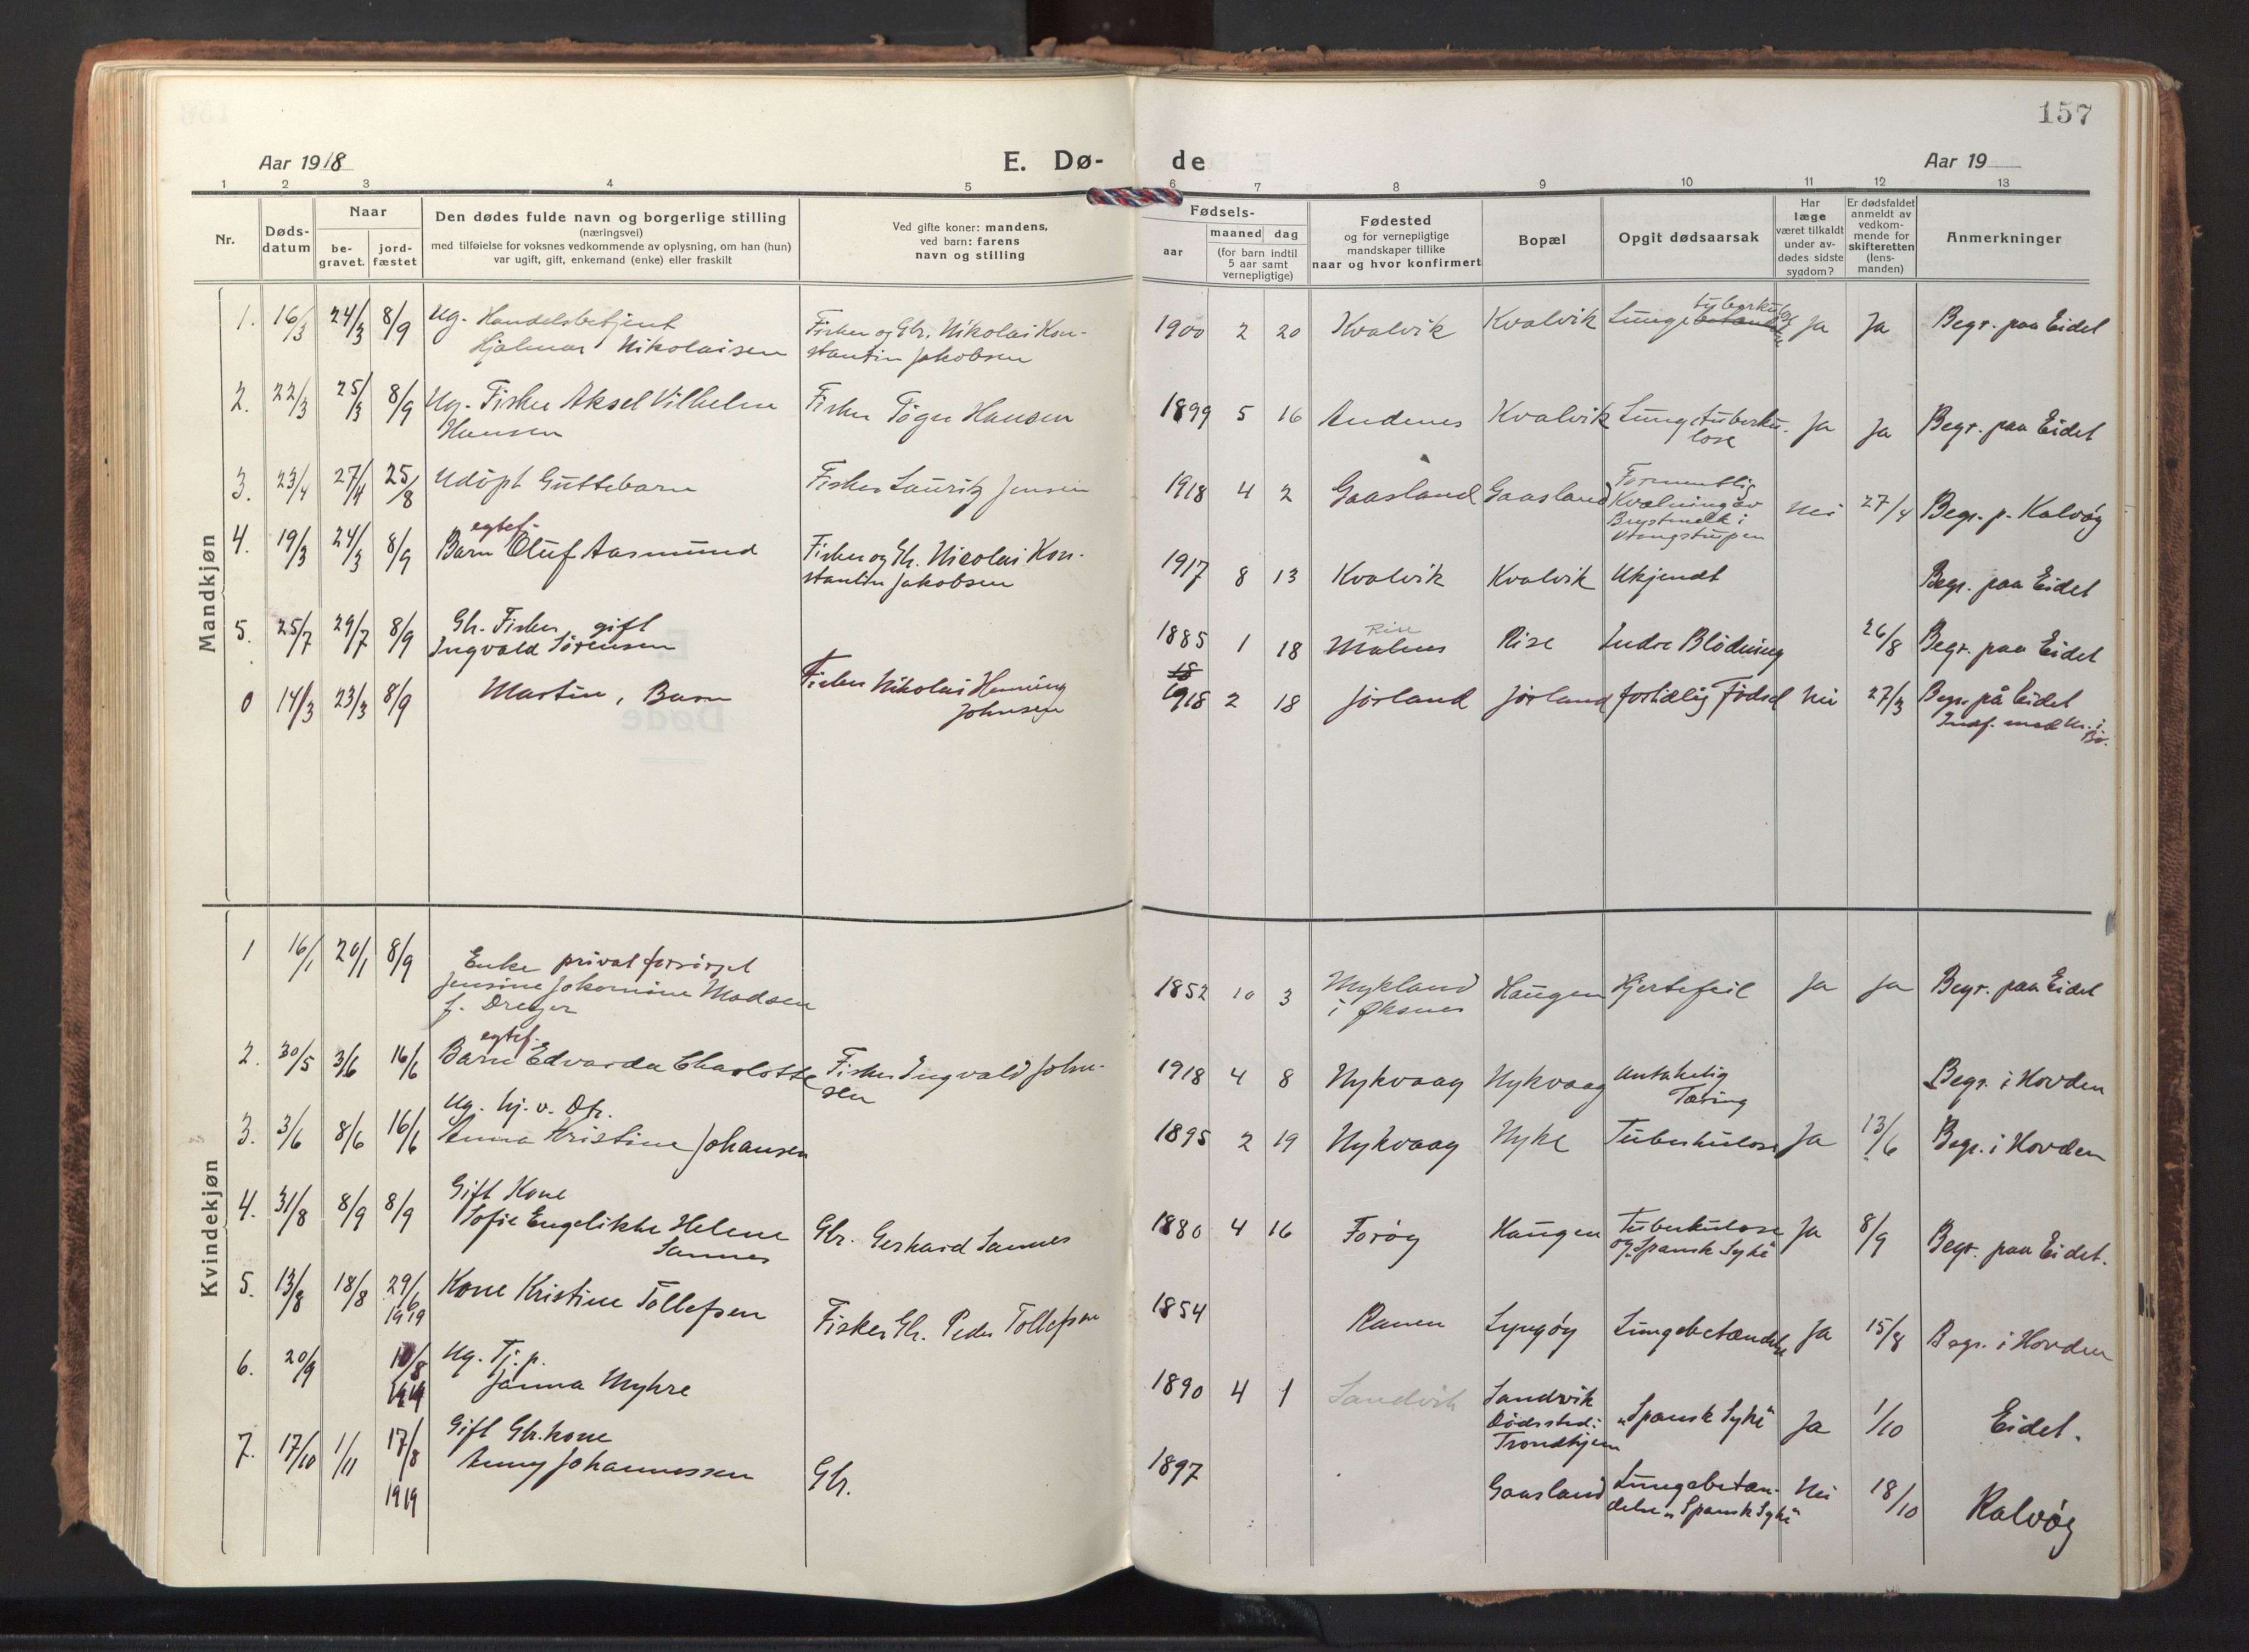 157
Aar 1918
E. Dø-
de
Aar 19
1 2 3 4 5 6 7 8 9 10 11 12 13
Nr.
Døds-
datum
Naar
be-
gravet.
jord-
fæstet
Den dødes fulde navn og borgerlige stilling
(næringsvei)
med tilføielse for voksnes vedkommende av oplysning, om han (hun)
var ugift, gift, enkemand (enke) eller fraskilt
Ved gifte koner: mandens,
ved barn: farens
navn og stilling
Fødsels-
aar
maaned dag
(for barn indtil
5 aar samt
vernepligtige)
Fødested
og for vernepligtige
mandskaper tillike
naar og hvor konfirmert
Bopæl
Opgit dødsaarsak
Har
læge
været tilkaldt
under av-
dødes sidste
sygdom?
Er dødsfaldet
anmeldt av
vedkom-
mende for
skifteretten
(lens-
manden)
Anmerkninger
Mandkjøn
1. 16/3 24/3 8/9 Ug. Handelsbetjent
Hjalmar Nikolaisen
Fisker og Gbr. Nikolai Kon-
stantin Jakobsen
1900 2 20 Kvalvik Kvalvik Lungetuberkulose Ja Ja Begr. paa Eidet
2. 22/3 25/3 8/9 Ug. Fisker Aksel Vilhelm
Hansen
Fisker Tøger Hansen
1899 5 16 Andenes Kvalvik Lungetuberku-
lose
Ja Ja Begr. paa Eidet
3. 23/4 27/4 25/8 Udöpt Guttebarn
Fisker Lauritz Jensen
1918 4 2 Gaasland Gaasland Formentlig
Kvælning av
Brystmelk i
Vrangstrupen
Nei 27/4 Begr. p. Kalvøy
4. 19/3 24/3 8/9 egtef.
Barn Oluf Aasmund
Fisker og Gbr. Nicolai Kon-
stantin Jakobsen
1917 8 13 Kvalvik Kvalvik Ukjendt Begr. paa Eidet
5. 25/7 29/7 8/9 Gbr. Fisker gift
Ingvald Sørensen
1885 1 18 Rise
Malnes
Rise Indre Blödning 26/8 Begr. paa Eidet
0 14/3 23/3 8/9 Martin, Barn
Fisker Nikolai Henning
Johnsen
18
1918 2 18 Jörland Jörland fortidlig Födsel Nei 27/3 Begr. på Eidet
Indf. med Nr. i
Bø.
Kvindekjøn
1 16/1 20/1 8/9 Enke privat forsörget
Jensine Jakomine Madsen
f. Dreyer
1852 10 3 Mykland
i Øksnes
Haugen Hjertefeil Ja Ja Begr. paa Eidet
2. 30/5 3/6 16/6 egtef.
Barn Edvarda Charlotte
Fisker Ingvald John-
sen
1918 4 8 Nykvaag Nykvaag antakelig
Tæring
Begr. i Hovden
3. 3/6 8/6 16/6 Ug. hj. v. Dtr.
Anna Kristine Johansen
1895 2 19 Nykvaag Nyke Tuberkulose Ja 13/6 Begr. i Hovden
4. 31/8 8/9 8/9 Gift Kone
Sofie Engelikke Helene
Sannes
Gbr. Gerhard Sannes
1880 4 16 Forøy Haugen Tuberkulose
og Spansk Syke
Ja 8/9 Begr. paa Eidet.
5. 13/8 18/8 29/6
1919
Kone Kristine Tollefsen
Fisker Gbr. Peder Tollefsen
1854 Ranen Lyngøy Lungebetændelse Ja 15/8 Begr. i Hovden
6. 20/9 10/8
1919
Ug. Tj. p.
Janna Myhre
1890 4 1 Sandvik Sandvik
Dödssted:
Trondhjem
„Spansk Syke" Ja 1/10 Eidet.
7. 17/10 1/11 17/8
1919
Gift Gbr. kone
Anny Johannessen
Gbr.
1897 Gaasland Lungebetæn-
delse „Spansk Syke"
Nei 18/10 Kalvøy